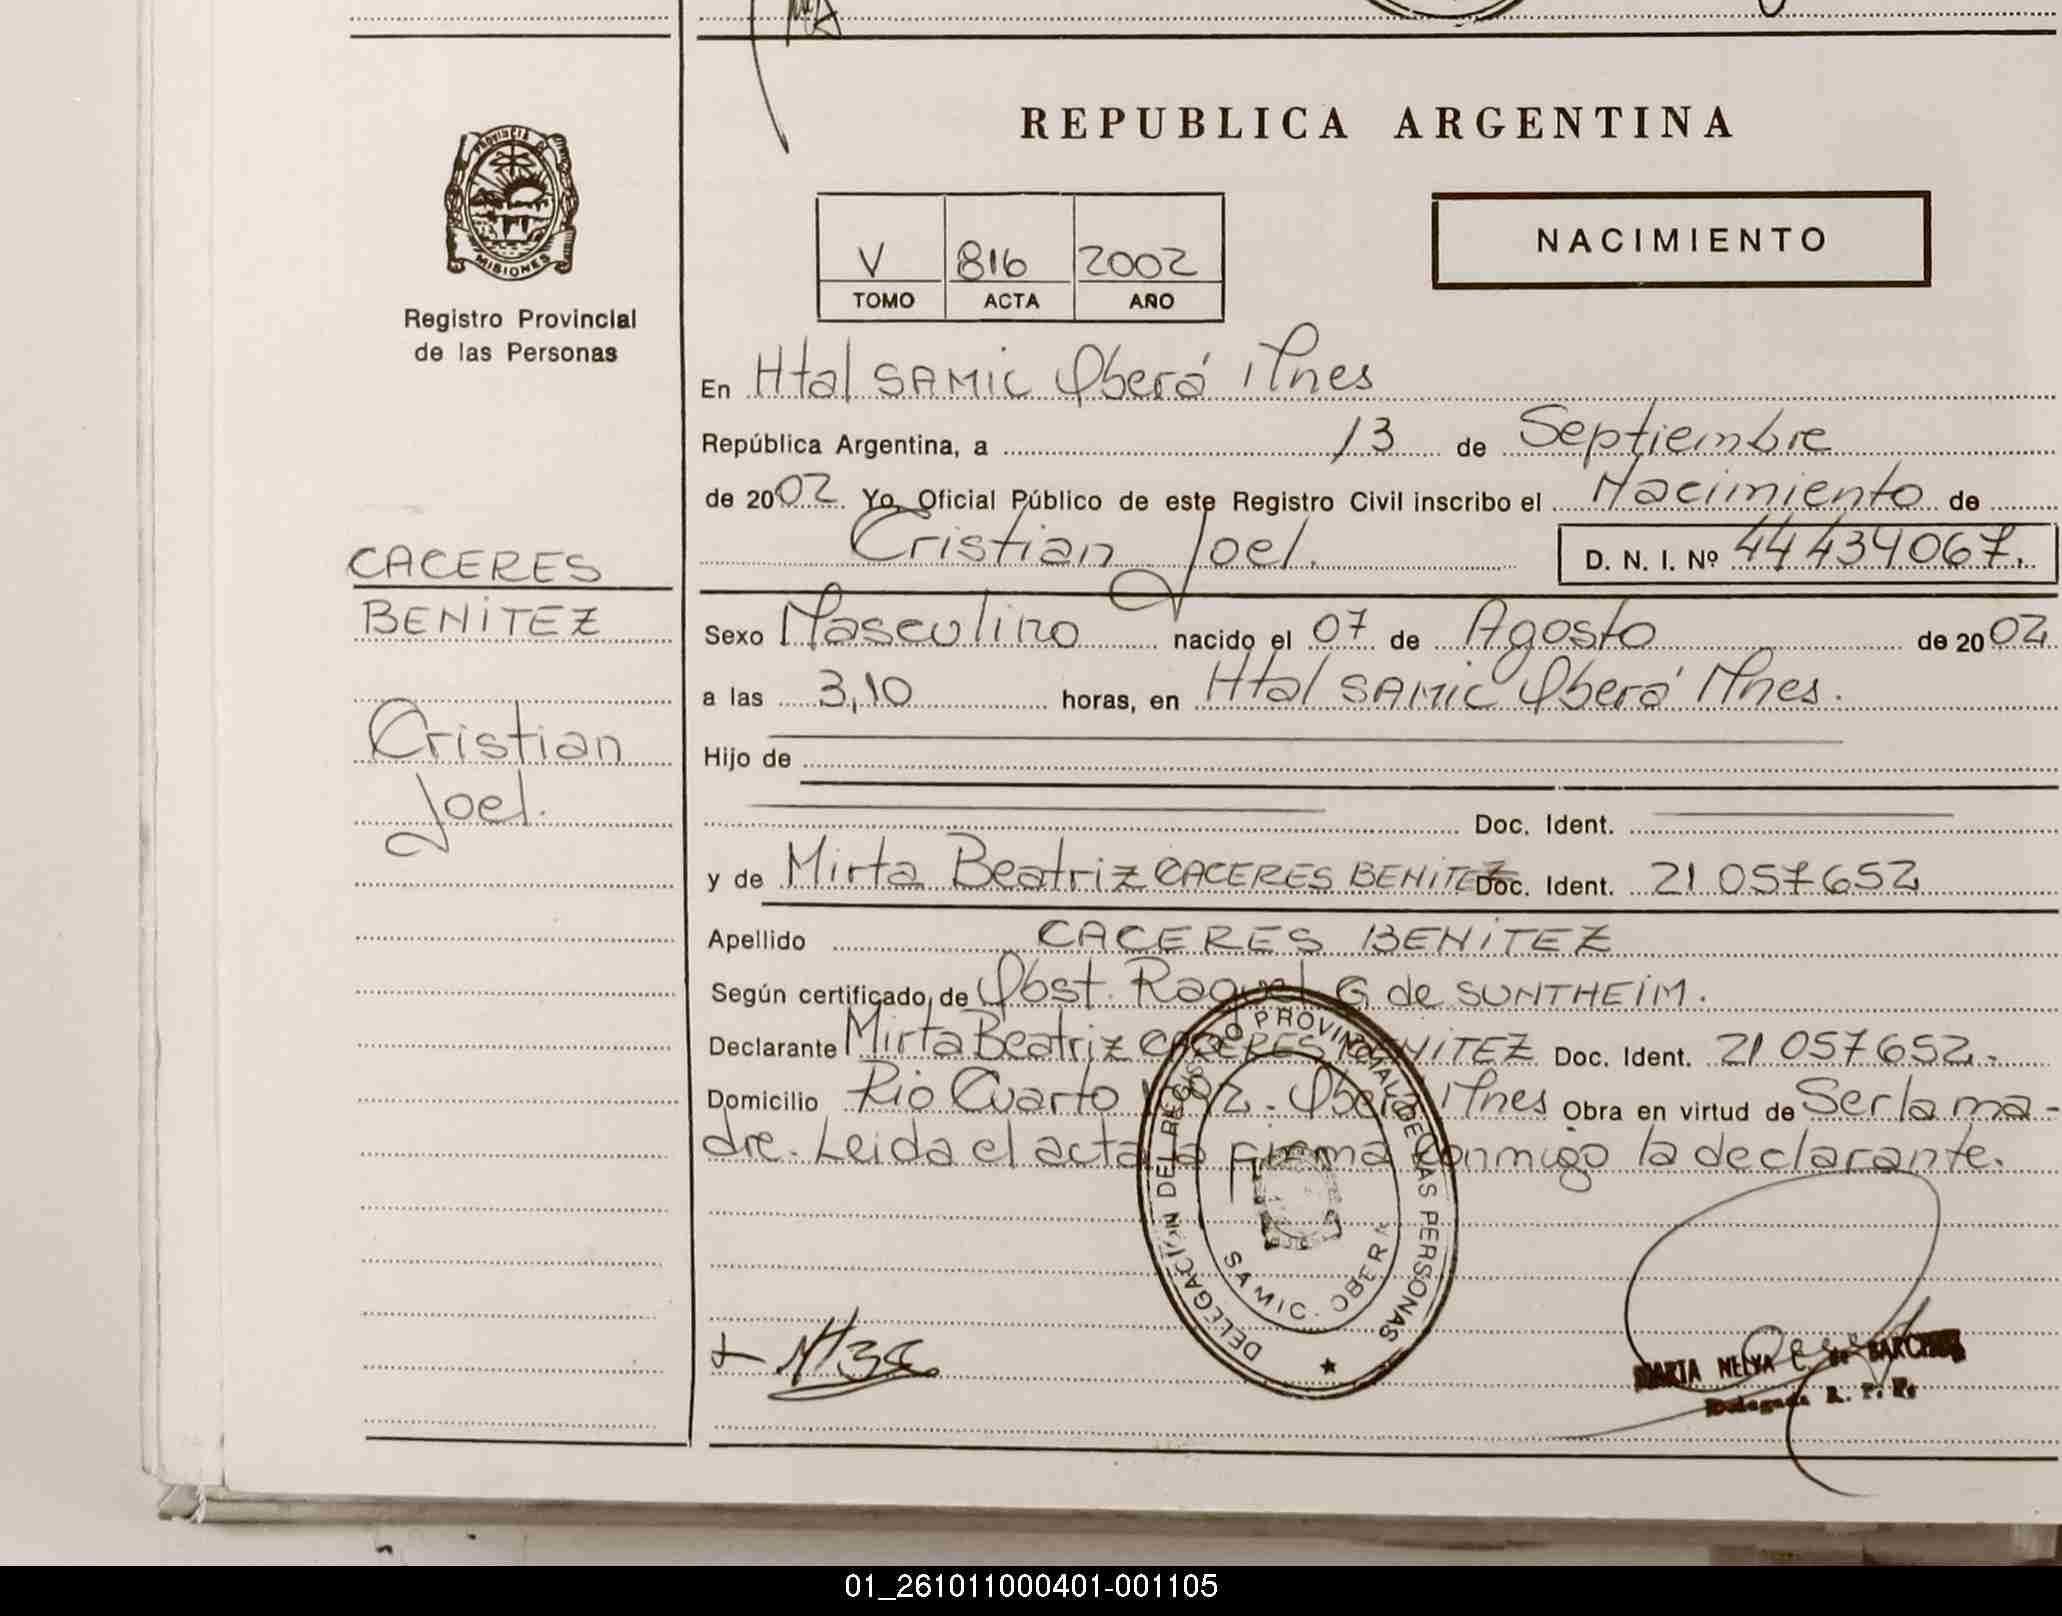 REPUBLICA ARGENTINA
PROVINCIA DE
MISIONES
Registro Provincial
de las Personas
V 816 2002
TOMO ACTA AÑO
NACIMIENTO
En Htal SAMIC Oberá Mnes
República Argentina, a 13 de Septiembre
de 2002 Yo, Oficial Público de este Registro Civil inscribo el Nacimiento de
Cristian Joel. D. N. I. Nº 44 434 067.
CACERES
BENITEZ
Cristian
Joel.
Sexo Masculino nacido el 07 de Agosto de 2002
a las 3,10 horas, en Htal SAMIC Oberá Mnes.
Hijo de
Doc. Ident.
y de Mirta Beatriz CACERES BENITEZ Doc. Ident. 21 057652
Apellido CACERES BENITEZ
Según certificado de Obst. Raquel G. de SUNTHEIM.
Declarante Mirta Beatriz CACERES BENITEZ Doc. Ident. 21 057652.
Domicilio Rio Cuarto Oberá Mnes Obra en virtud de Ser la ma-
dre. Leida el acta la firma conmigo la declarante.
DELEGACIÓN DEL REGISTRO PROVINCIAL DE LAS PERSONAS
SAMIC. OBERA
MARTA NELVA C. de
Delegada R. P. P.
01_261011000401-001105